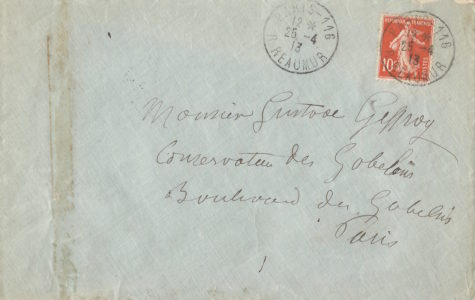 PARIS-116
12 *
25 -4
13
R. REAUMUR
REPUBLIQUE FRANCAISE
10
POSTES
116
12 *
25 -4
13
REAUMUR
Monsieur Gustave Geffroy
Conservateur des Gobelins
Boulevard des Gobelins
Paris